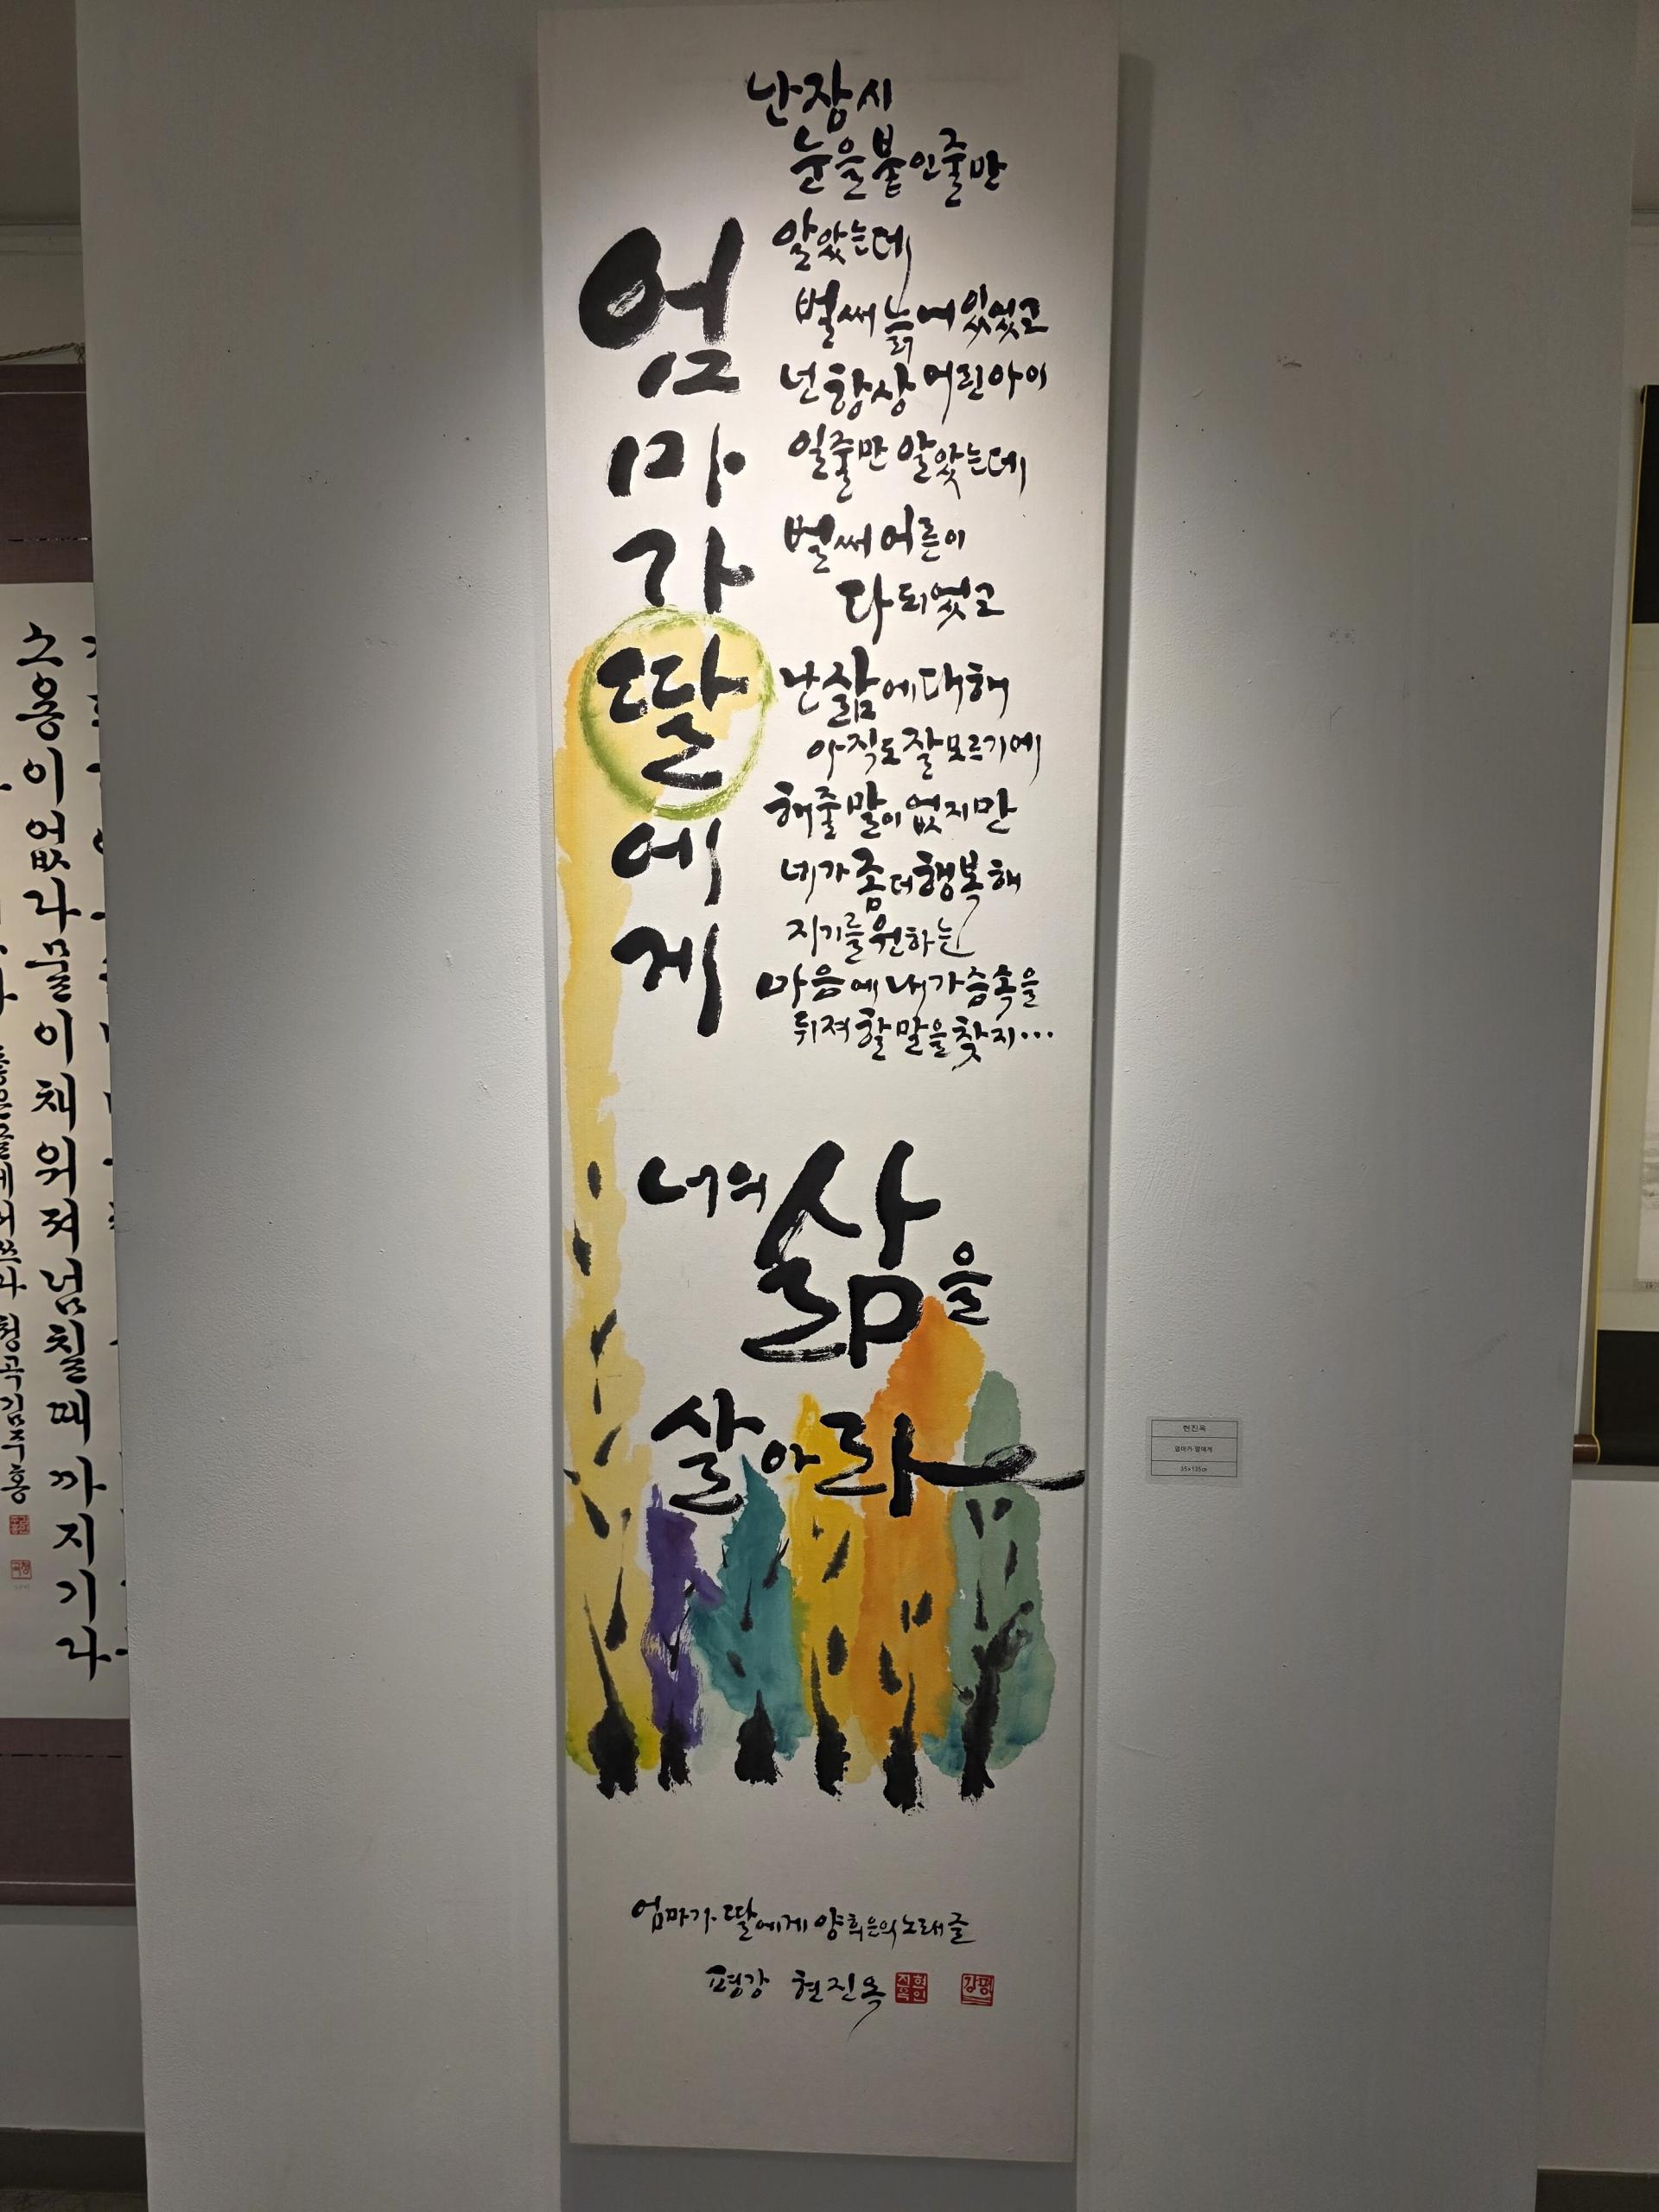 엄마가딸에게
난 잠시
눈을 붙인줄만
알았는데
벌써 늙어있었고
넌 항상 어린아이
일줄만 알았는데
벌써 어른이
다 되었고
난 삶에 대해
아직도 잘 모르기에
해줄 말이 없지만
네가 좀 더 행복해
지기를 원하는
마음에 내 가슴속을
뒤져 할 말을 찾지...
너의 삶을
살아라
엄마가 딸에게 양희은의 노래 글
평강 현진옥
현진옥인
평강
현진옥
엄마가 딸에게
35x135㎝
소용이없라글이채워져넘칠때까지기라